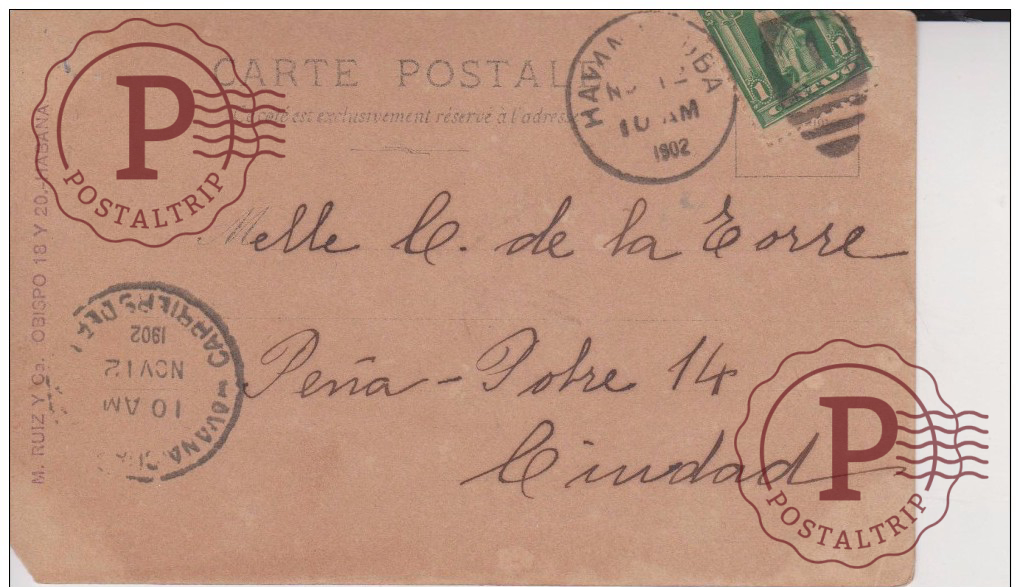 CARTE POSTALE
Ce côté est exclusivement réservé à l'adresse
HAVANA CUBA
NOV 12
10 AM
1902
1 CENTAVO 1
Melle C. de la Torre
Peña-Pobre 14
Ciudad
M. RUIZ Y Ca. OBISPO 18 Y 20.-HABANA
HAVANA
CARRIERS
1902
NOV 12
10 AM
P
POSTALTRIP
P
POSTALTRIP